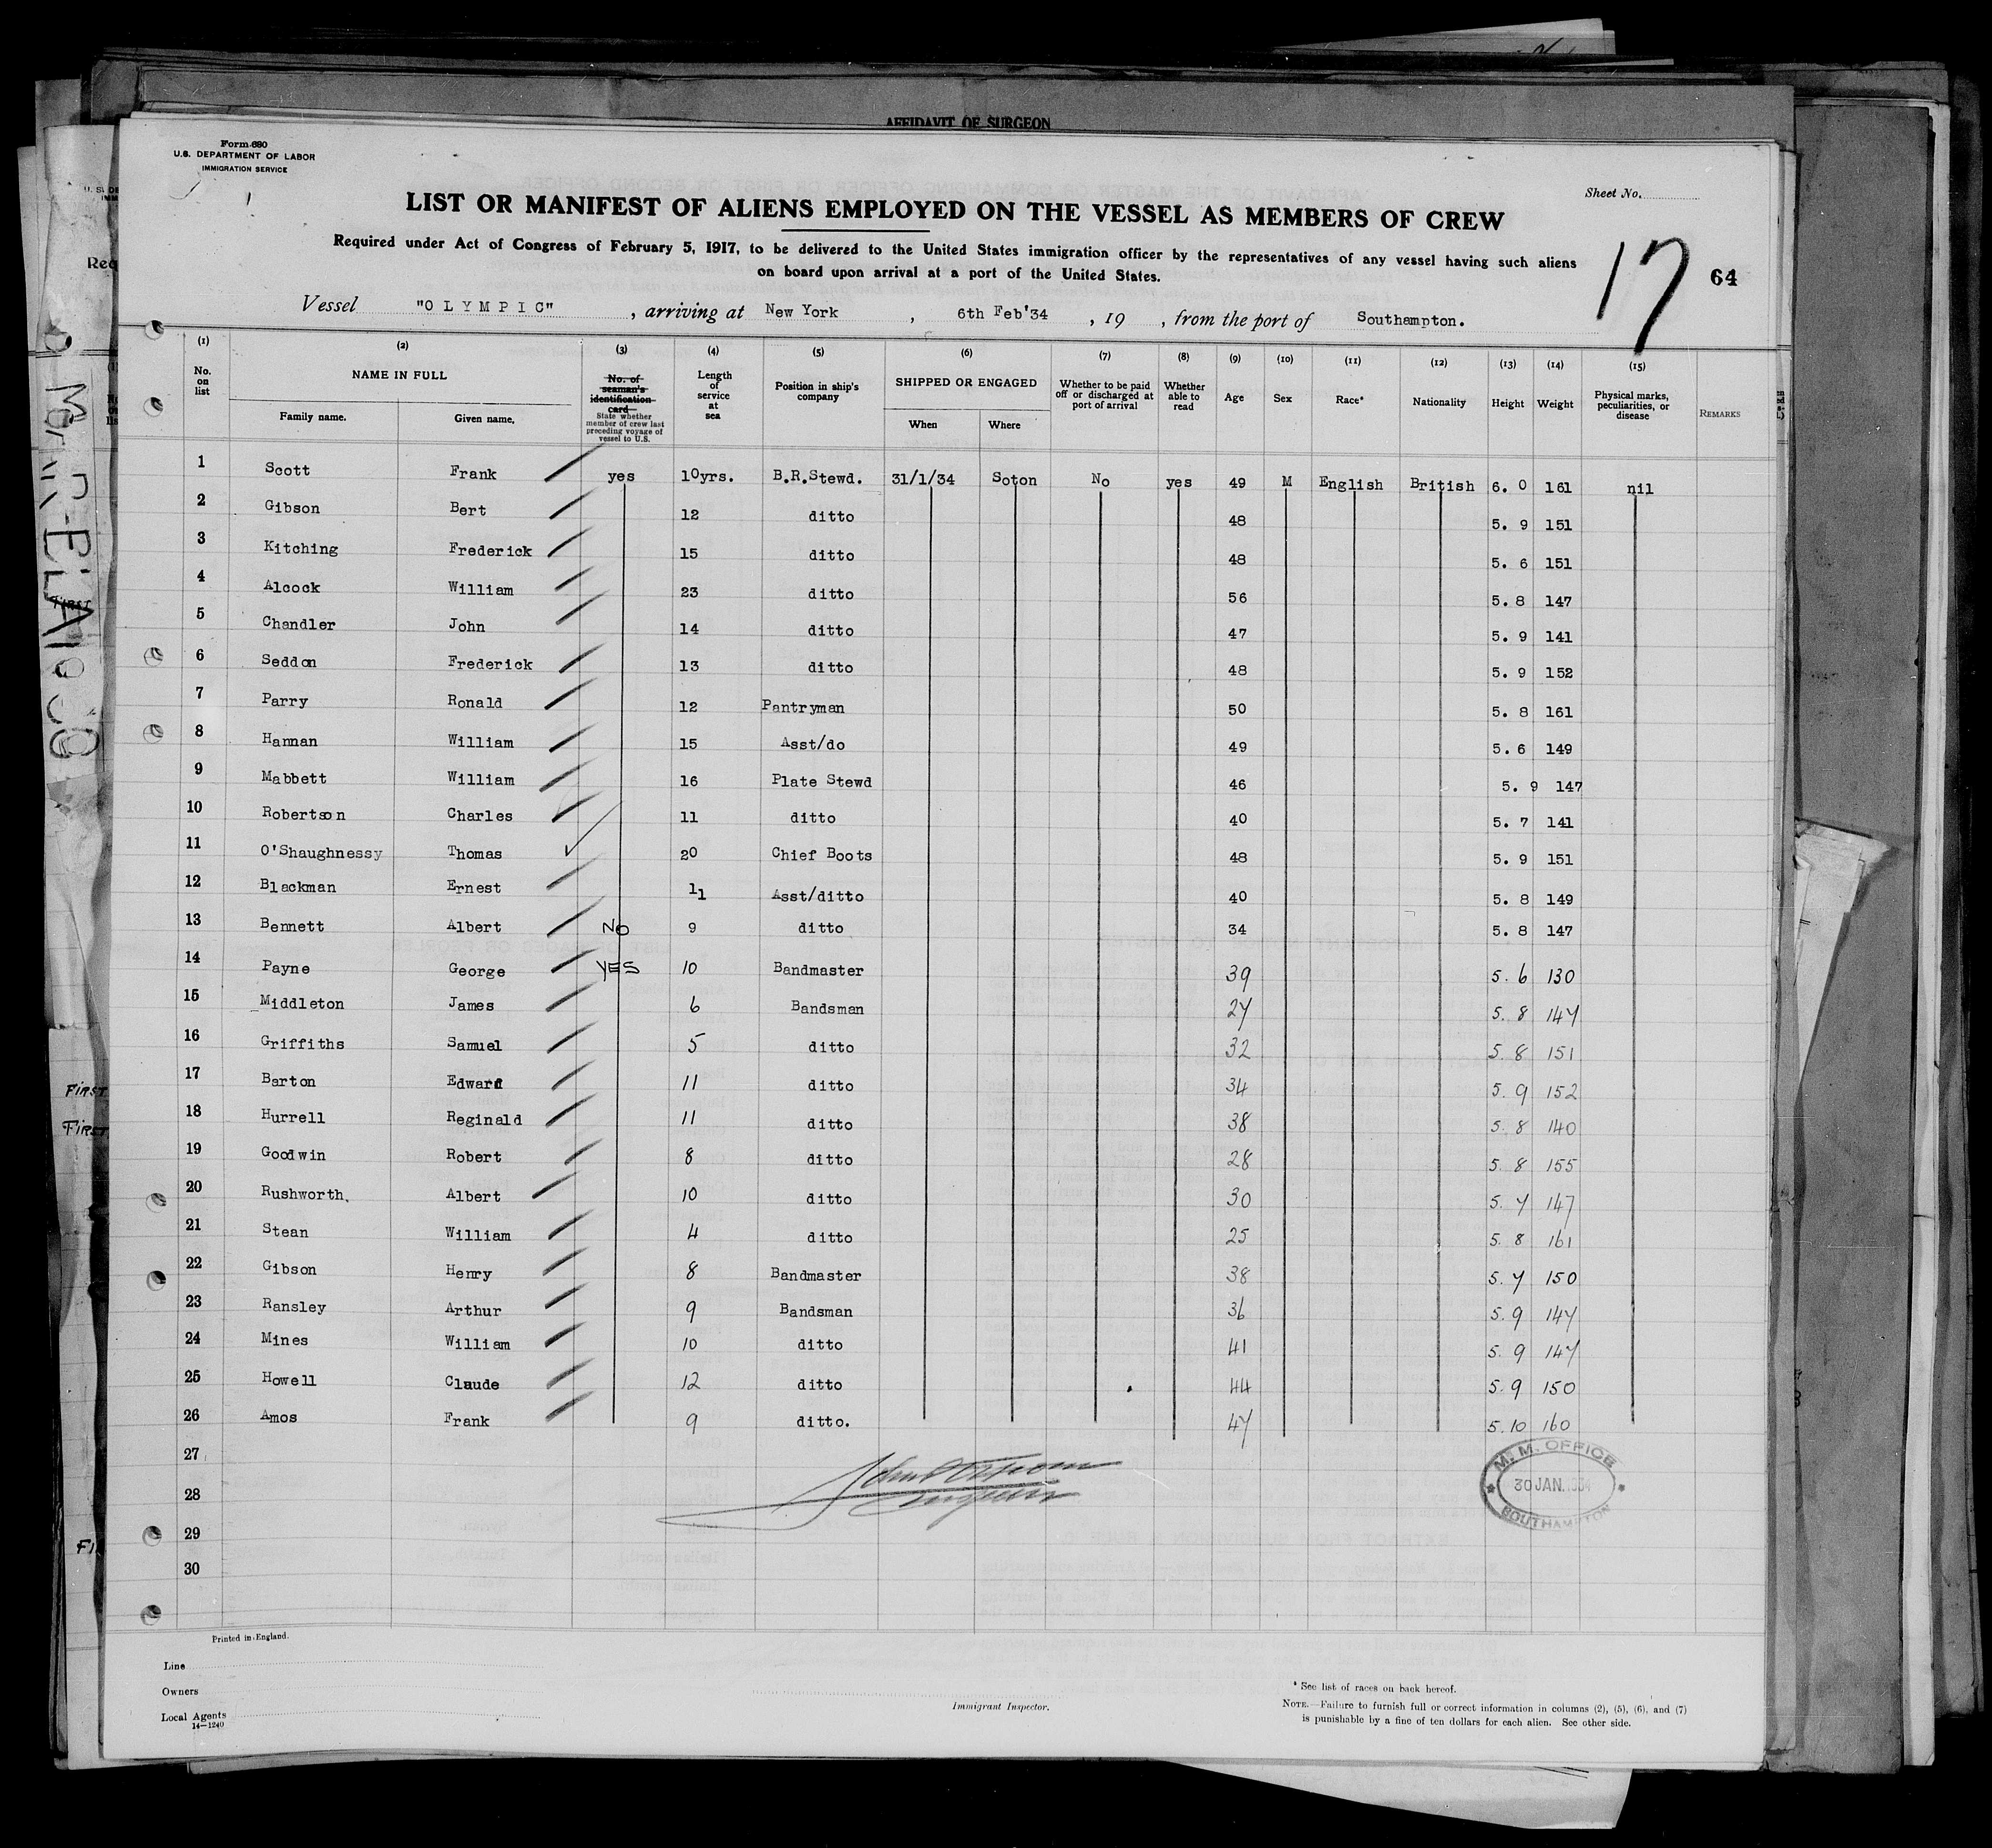 AFFIDAVIT OF SURGEON
Form 680
U.S. DEPARTMENT OF LABOR
IMMIGRATION SERVICE
Sheet No.
LIST OR MANIFEST OF ALIENS EMPLOYED ON THE VESSEL AS MEMBERS OF CREW
Required under Act of Congress of February 5, 1917, to be delivered to the United States immigration officer by the representatives of any vessel having such aliens
on board upon arrival at a port of the United States.
17 64
Vessel "OLYMPIC", arriving at New York, 6th Feb'34, 19 , from the port of Southampton.
(1) (2) (3) (4) (5) (6) (7) (8) (9) (10) (11) (12) (13) (14) (15)
No. on list NAME IN FULL Family name. Given name. No. of seaman's identification card State whether member of crew last preceding voyage of vessel to U.S. Length of service at sea Position in ship's company SHIPPED OR ENGAGED When Where Whether to be paid off or discharged at port of arrival Whether able to read Age Sex Race* Nationality Height Weight Physical marks, peculiarities, or disease REMARKS
1 Scott Frank yes 10yrs. B.R.Stewd. 31/1/34 Soton No yes 49 M English British 6. 0 161 nil
2 Gibson Bert 12 ditto 48 5. 9 151
3 Kitching Frederick 15 ditto 48 5. 6 151
4 Alcock William 23 ditto 56 5. 8 147
5 Chandler John 14 ditto 47 5. 9 141
6 Seddon Frederick 13 ditto 48 5. 9 152
7 Parry Ronald 12 Pantryman 50 5. 8 161
8 Hannan William 15 Asst/do 49 5. 6 149
9 Mabbett William 16 Plate Stewd 46 5. 9 147
10 Robertson Charles 11 ditto 40 5. 7 141
11 O'Shaughnessy Thomas 20 Chief Boots 48 5. 9 151
12 Blackman Ernest 11 Asst/ditto 40 5. 8 149
13 Bennett Albert NO 9 ditto 34 5. 8 147
14 Payne George YES 10 Bandmaster 39 5. 6 130
15 Middleton James 6 Bandsman 27 5. 8 147
16 Griffiths Samuel 5 ditto 32 5. 8 151
17 Barton Edward 11 ditto 34 5. 9 152
18 Hurrell Reginald 11 ditto 38 5. 8 140
19 Goodwin Robert 8 ditto 28 5. 8 155
20 Rushworth. Albert 10 ditto 30 5. 7 147
21 Stean William 4 ditto 25 5. 8 161
22 Gibson Henry 8 Bandmaster 38 5. 7 150
23 Ransley Arthur 9 Bandsman 36 5. 9 147
24 Mines William 10 ditto 41 5. 9 147
25 Howell Claude 12 ditto 44 5. 9 150
26 Amos Frank 9 ditto. 47 5. 10 160
27
28
29
30
Surgeon
M. M. OFFICE
30 JAN. 1934
SOUTHAMPTON
FIRST
FIRST
Printed in England.
Line
Owners
Local Agents
14—1240
Immigrant Inspector.
* See list of races on back hereof.
NOTE.—Failure to furnish full or correct information in columns (2), (5), (6), and (7)
is punishable by a fine of ten dollars for each alien. See other side.